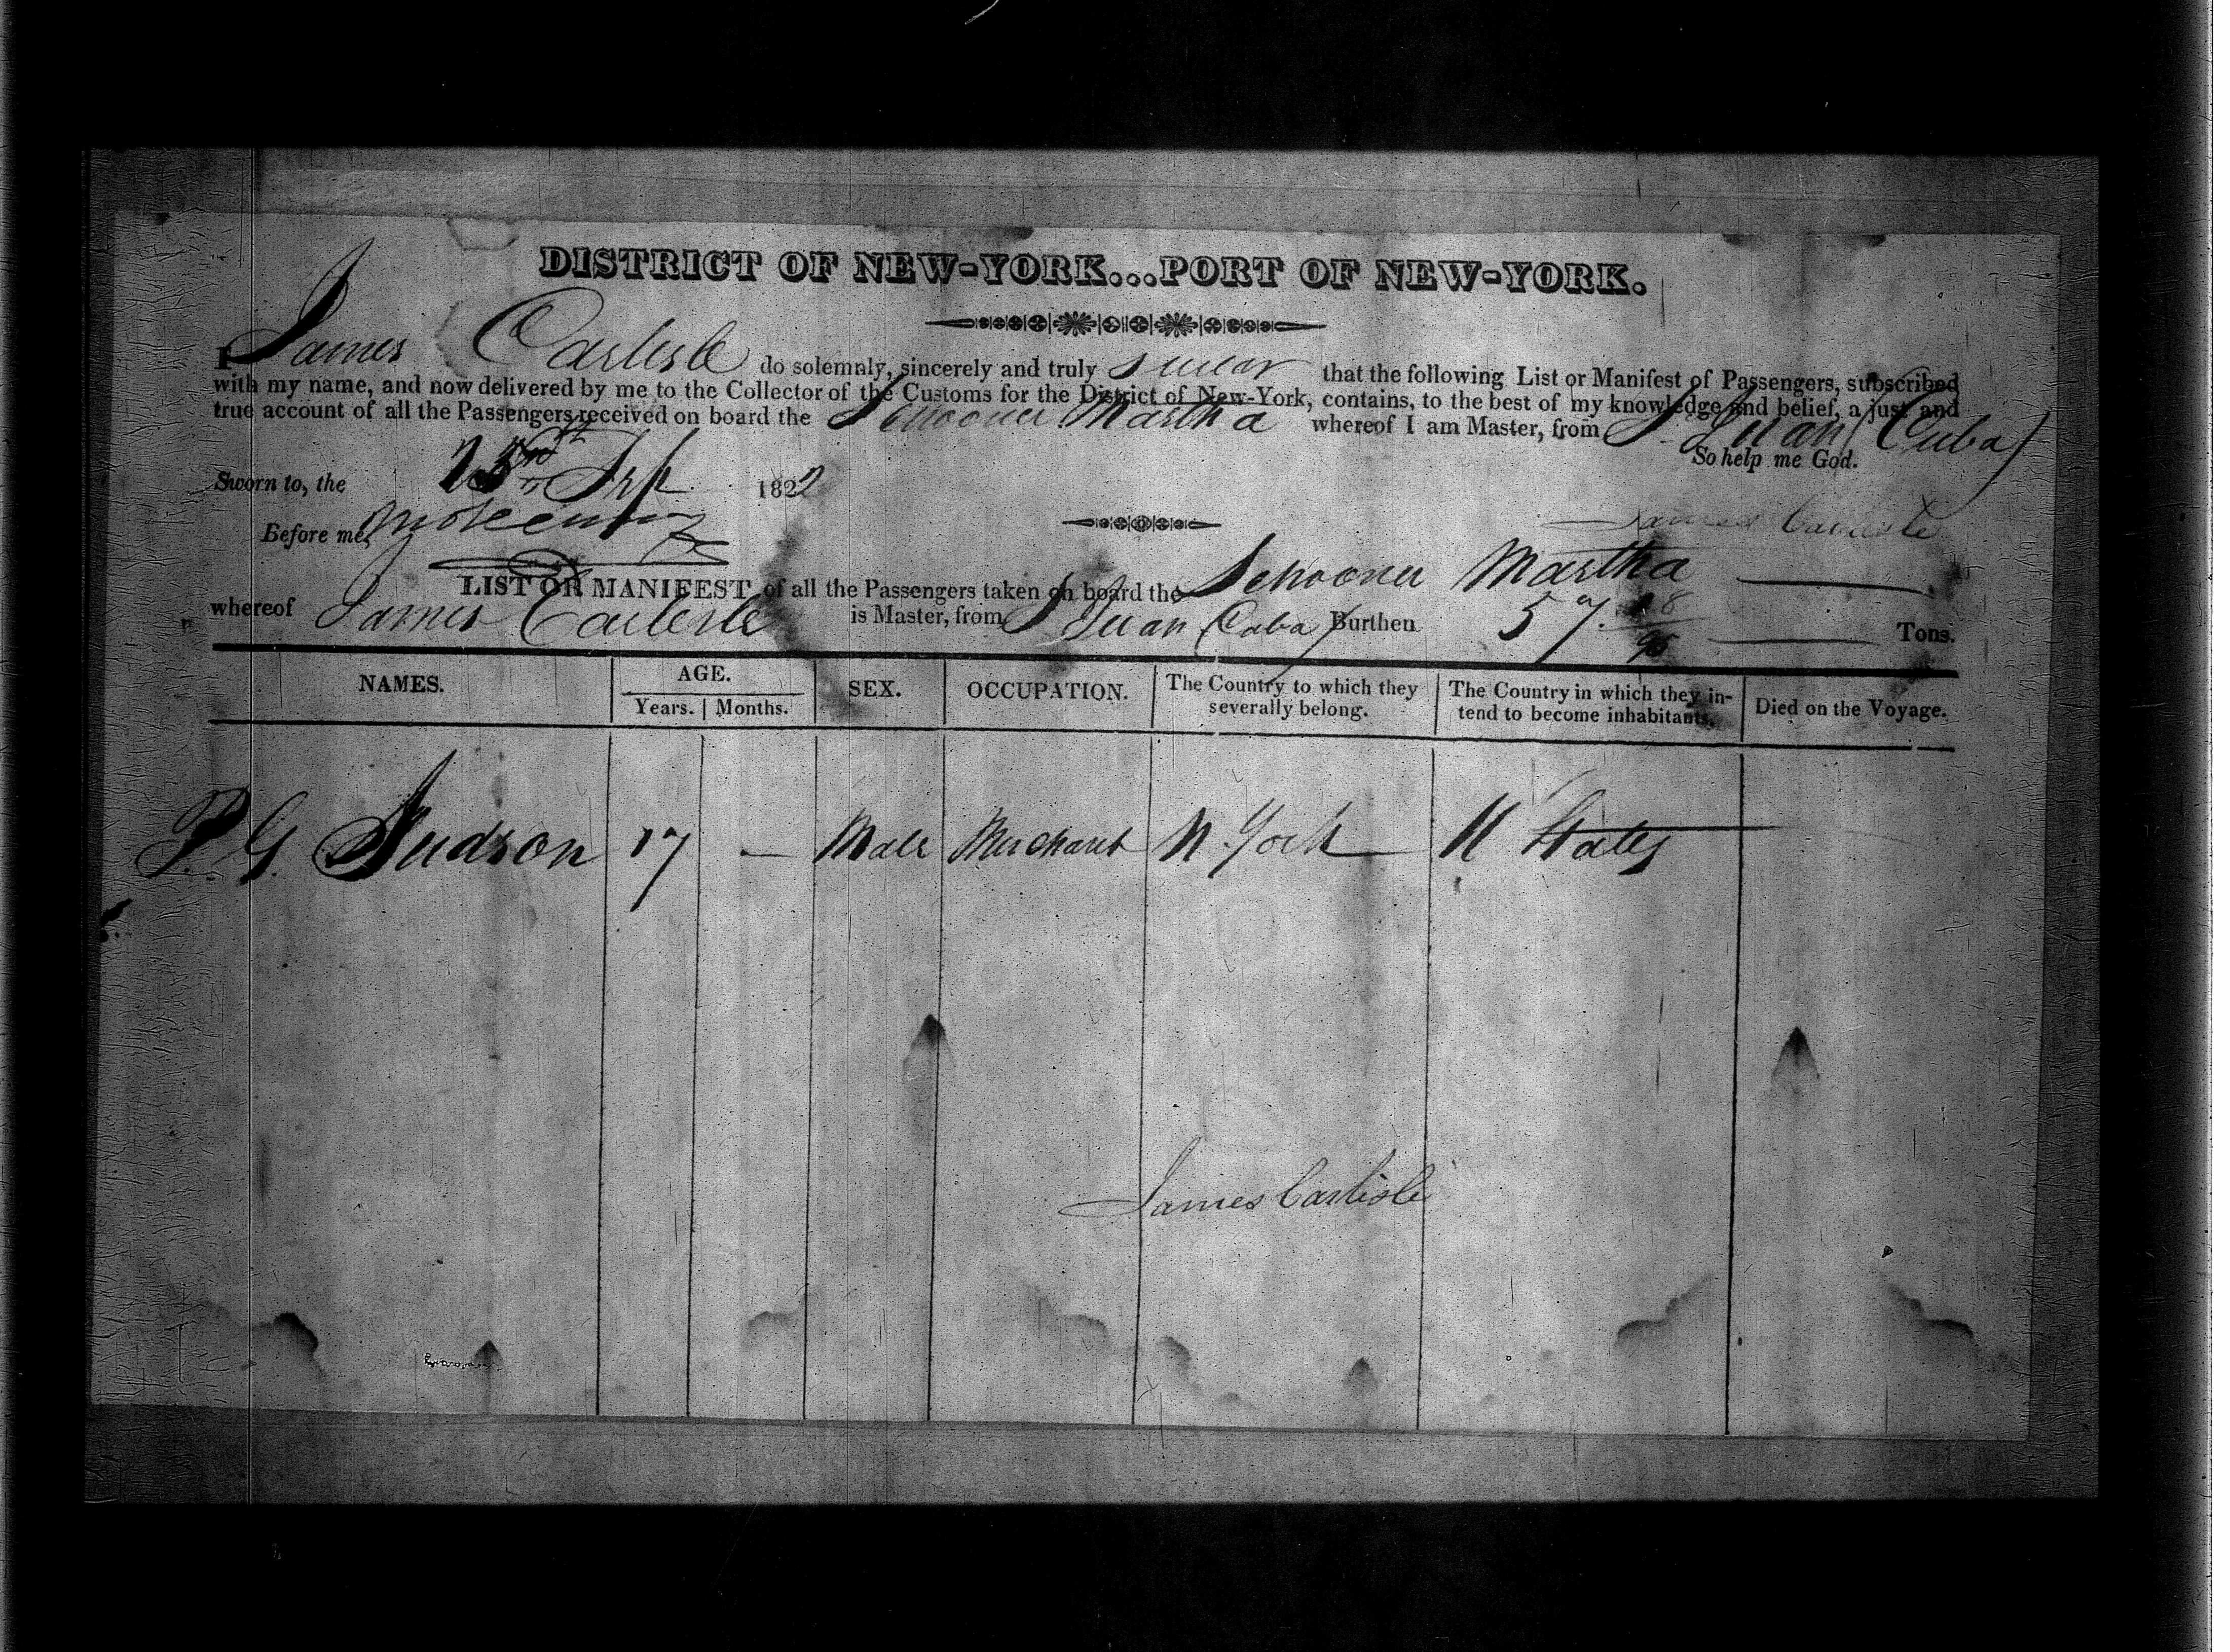 DISTRICT OF NEW-YORK...PORT OF NEW-YORK.
I James Carlisle do solemnly, sincerely and truly swear that the following List or Manifest of Passengers, subscribed
with my name, and now delivered by me to the Collector of the Customs for the District of New-York, contains, to the best of my knowledge and belief, a just and
true account of all the Passengers received on board the Schooner Martha whereof I am Master, from S. Juan (Cuba)
So help me God.
Sworn to, the 1822
James Carlisle
Before me,
LIST OR MANIFEST of all the Passengers taken on board the Schooner Martha
whereof James Carlisle is Master, from S Juan (Cuba) Burthen 57 /95 Tons.
NAMES. AGE. SEX. OCCUPATION. The Country to which they severally belong. The Country in which they intend to become inhabitants. Died on the Voyage.
Years. Months.
P. G. Judson 17 — Male Merchant N. York U States
James Carlisle